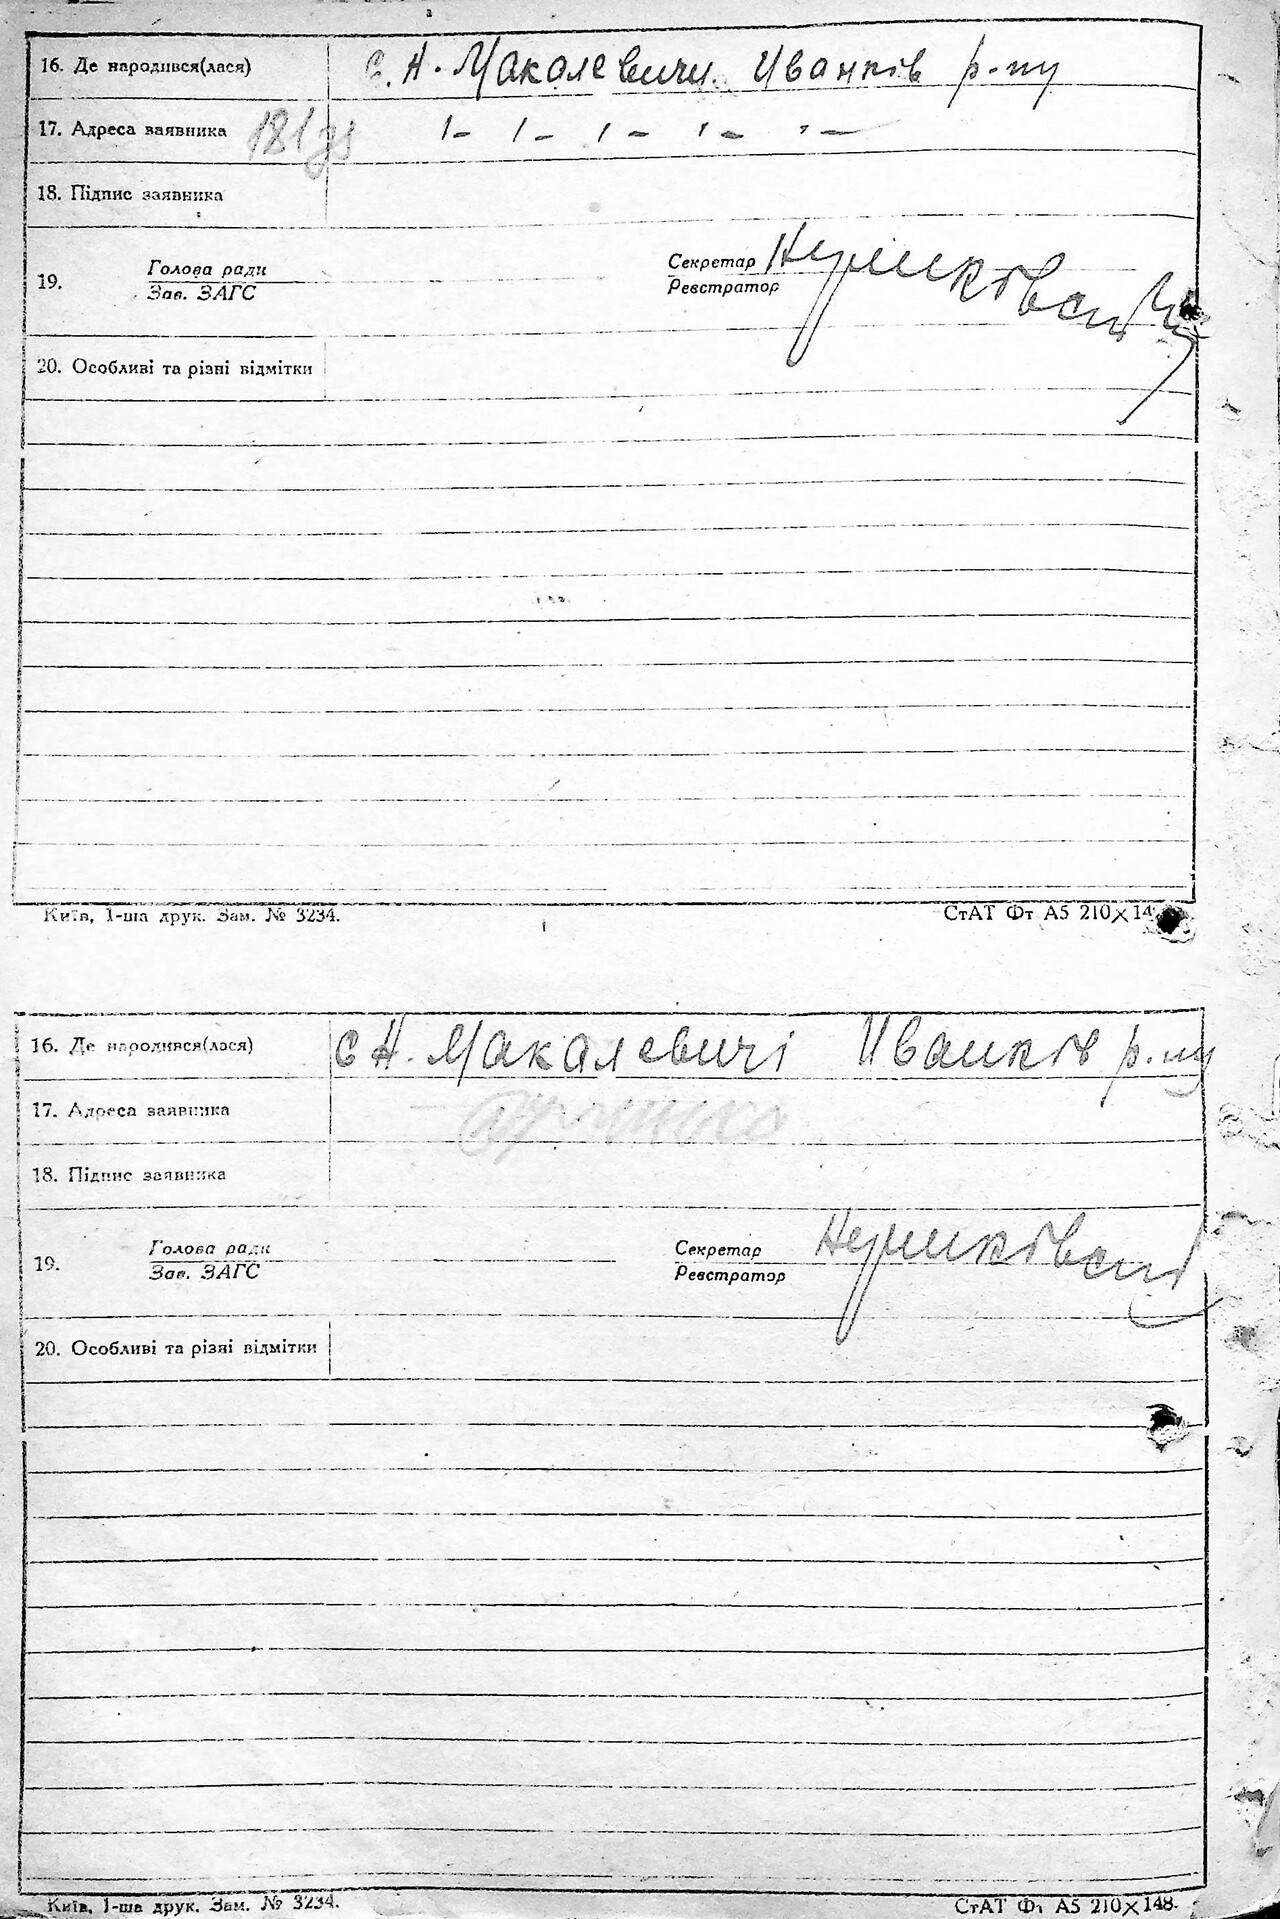 16. Де народився(лася) с. Н. Макалевичи Иванків р-ну
17. Адреса заявника 181 - " - " - " - " - " -
18. Підпис заявника
19. Голова ради Секретар
Зав. ЗАГС Реєстратор
20. Особливі та різні відмітки
Київ, 1-ша друк. Зам. № 3234. СтАТ Фт А5 210×14
16. Де народився(лася) с Н. Макалевичі Иванків р-ну
17. Адреса заявника
18. Підпис заявника
19. Голова ради Секретар
Зав. ЗАГС Реєстратор
20. Особливі та різні відмітки
Київ, 1-ша друк. Зам. № 3234. СтАТ Фт А5 210×148.